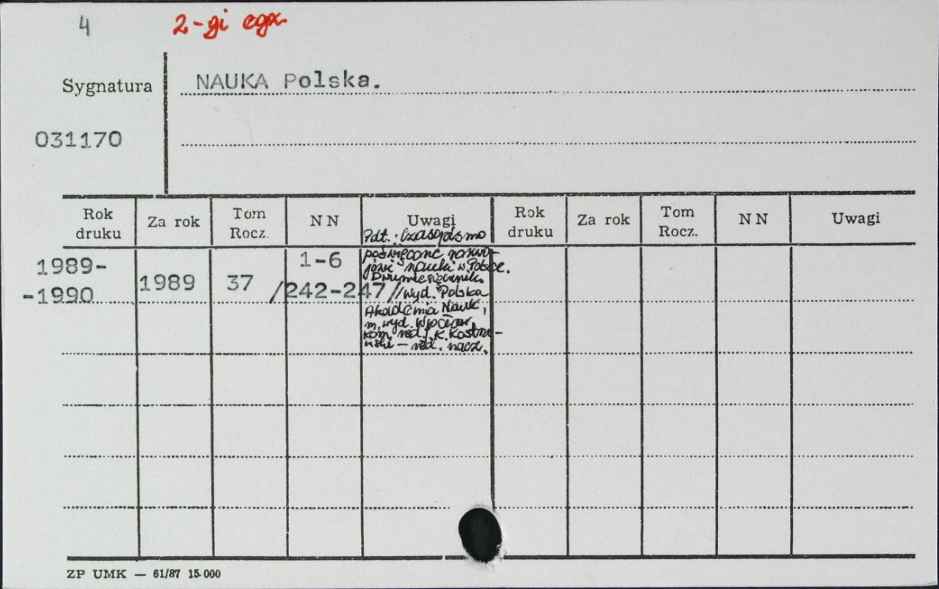 4
2-gi egz.
Sygnatura
NAUKA Polska.
031170
Rok druku Za rok Tom Rocz. N N Uwagi Rok druku Za rok Tom Rocz. N N Uwagi
1989-
-1990 1989 37 1-6
/242-247/
Pdt.: Czasopismo
poświęcone rozwo-
jowi nauki w Polsce.
Dwumiesięcznik.
wyd. Polska
Akademia Nauk,
m. wyd.
kom. red. K. Kostrze-
wski – red. nacz.
ZP UMK — 61/87 15 000